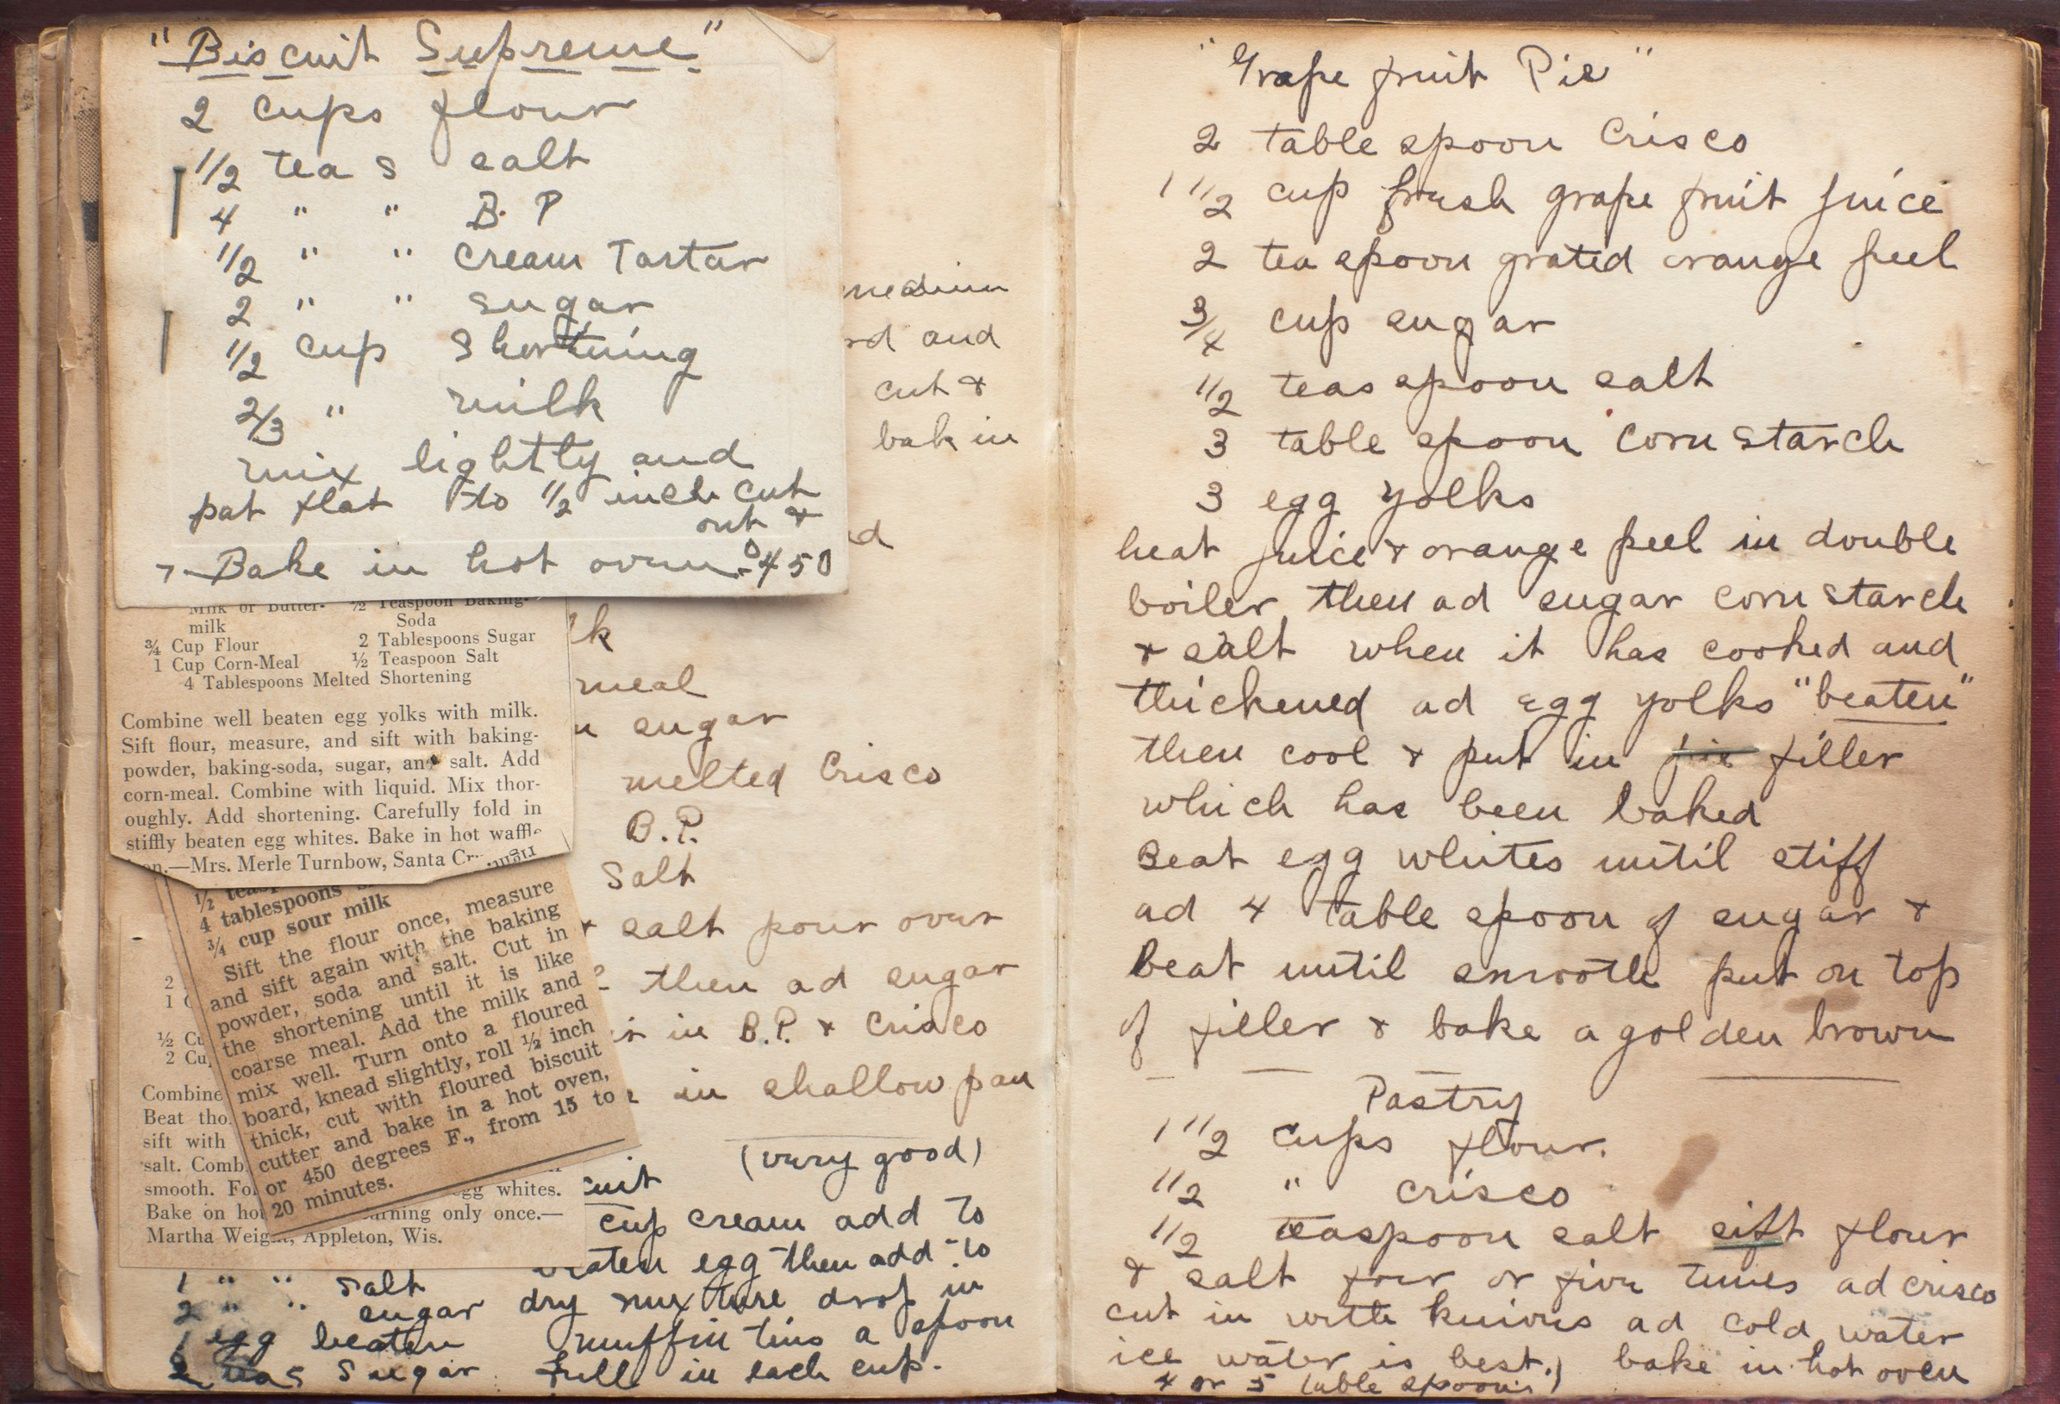 "Biscuit Supreme"
2 cups flour
1/2 teas salt
4 " " B. P
1/2 " " cream Tartar
2 " " sugar
1/2 cup Shortning
2/3 " milk
mix lightly and
pat flat to 1/2 inch cut
out &
Bake in hot oven 450
medium
and
cut &
bak in
Milk or Butter-
milk
¾ Cup Flour
1 Cup Corn-Meal
½ Teaspoon Baking-
Soda
2 Tablespoons Sugar
½ Teaspoon Salt
4 Tablespoons Melted Shortening
Combine well beaten egg yolks with milk.
Sift flour, measure, and sift with baking-
powder, baking-soda, sugar, and salt. Add
corn-meal. Combine with liquid. Mix thor-
oughly. Add shortening. Carefully fold in
stiffly beaten egg whites. Bake in hot waffle
—Mrs. Merle Turnbow, Santa
meal
sugar
melted Crisco
B.P.
Salt
& salt pour over
then ad sugar
in B.P. & Crisco
in shallow pan
½
4 tablespoons
¾ cup sour milk
Sift the flour once, measure
and sift again with the baking
powder, soda and salt. Cut in
the shortening until it is like
coarse meal. Add the milk and
mix well. Turn onto a floured
board, knead slightly, roll ½ inch
thick, cut with floured biscuit
cutter and bake in a hot oven,
or 450 degrees F., from 15 to
20 minutes.
2
1
½
2
Combine
Beat
sift with
salt.
smooth. egg whites.
Bake on only once.—
Martha Appleton, Wis.
(very good)
cup cream add to
egg then add to
dry mixture drop in
muffin tins a spoon
full in each cup.
1 " " salt
2 " " sugar
1 egg beaten
2 teas Sugar
"Grape fruit Pie"
2 table spoon Crisco
1 1/2 cup fresh grape fruit juice
2 tea spoon grated orange peel
3/4 cup sugar
1/2 teas spoon salt
3 table spoon corn starch
3 egg yolks
heat juice & orange peel in double
boiler then ad sugar corn starch
& salt when it has cooked and
thickened ad egg yolks "beaten"
then cool & put in pie filler
which has been baked
Beat egg whites until stiff
ad 4 table spoon of sugar &
Beat until smooth put on top
of filler & bake a golden brown
Pastry
1 1/2 cups flour.
1/2 " crisco
1/2 teaspoon salt sift flour
& salt four or five times ad crisco
cut in with knives ad cold water
ice water is best.) bake in hot oven
4 or 5 table spoons)